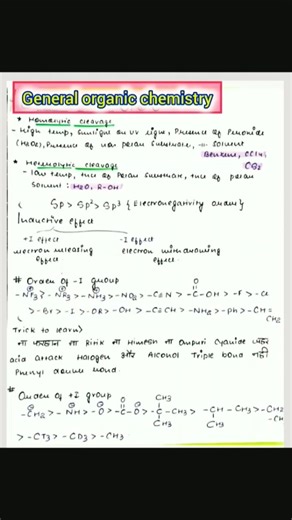 General organic chemistry
* Homolytic cleavage
- High temp, sunlight or UV light, Presence of Peroxide
(H2O2), Presence of non polar substrate, solvent
Benzene, CCl4,
CS2
* Heterolytic cleavage
- low temp, use of Polar substrate, use of polar
solvent : H2O, R-OH
SP > SP2 > SP3 { Electronegativity order }
Inductive effect
+I effect -I effect
electron releasing electron withdrawing
effect effect
# Order of -I group
-NF3 > -NR3 > -NH3 > -NO2 > -C≡N > -C-OH > -F > -Cl
> -Br > -I > -OR > -OH > -C≡CH > -NH2 > -Ph > -CH=
CH2
Trick to learn)
ना ना Ririk ना Himesh ना Ompuri Cyanide
acid attack Halogen और Alcohol Triple bond नहीं
Phenyl bond
#
Order of +I group
-CH2 > -NH > -O > -C-O > -C-CH3 > -CH-CH3 > -CH2
-CH
> -CT3 > -CD3 > -CH3